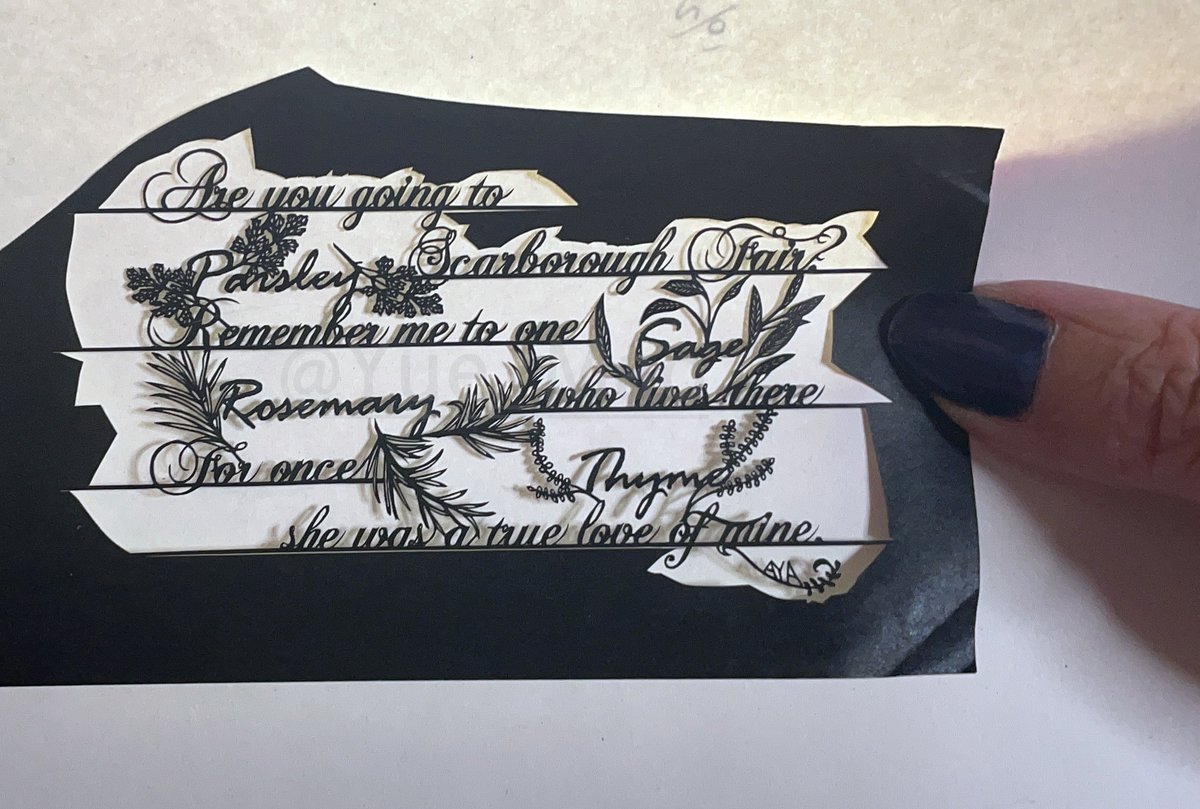 Are you going to
Scarborough Fair?
Parsley
Remember me to one
Sage
Rosemary
who lives there
For once
Thyme
she was a true love of mine.
AYA